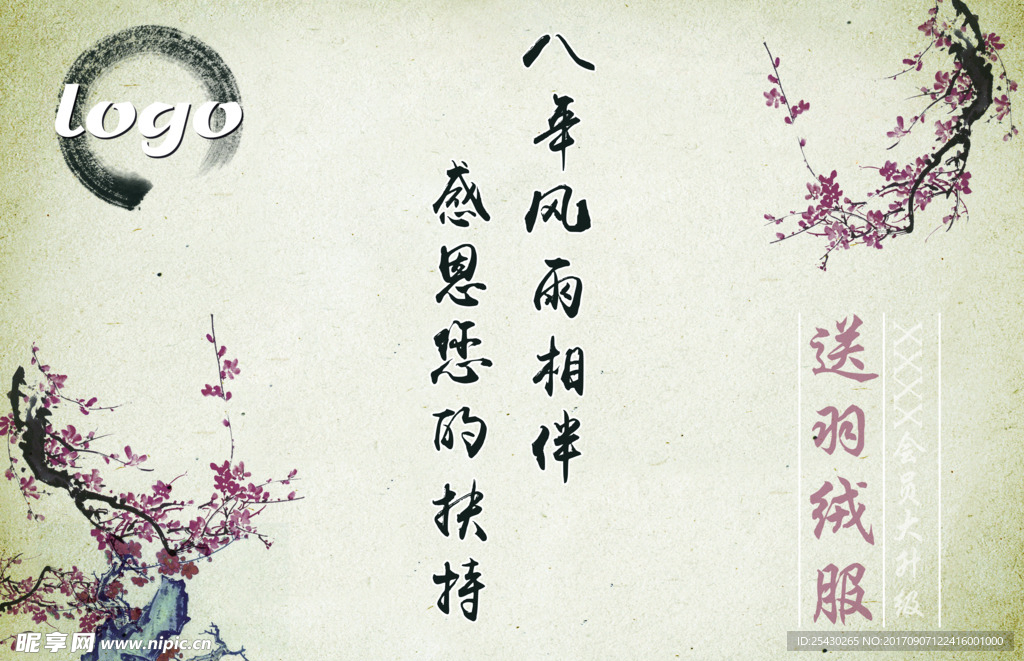 logo
八年风雨相伴
感恩您的扶持
XXXXX会员大升级
送羽绒服
昵享网 www.nipic.cn
ID:25430265 NO:20170907122416001000